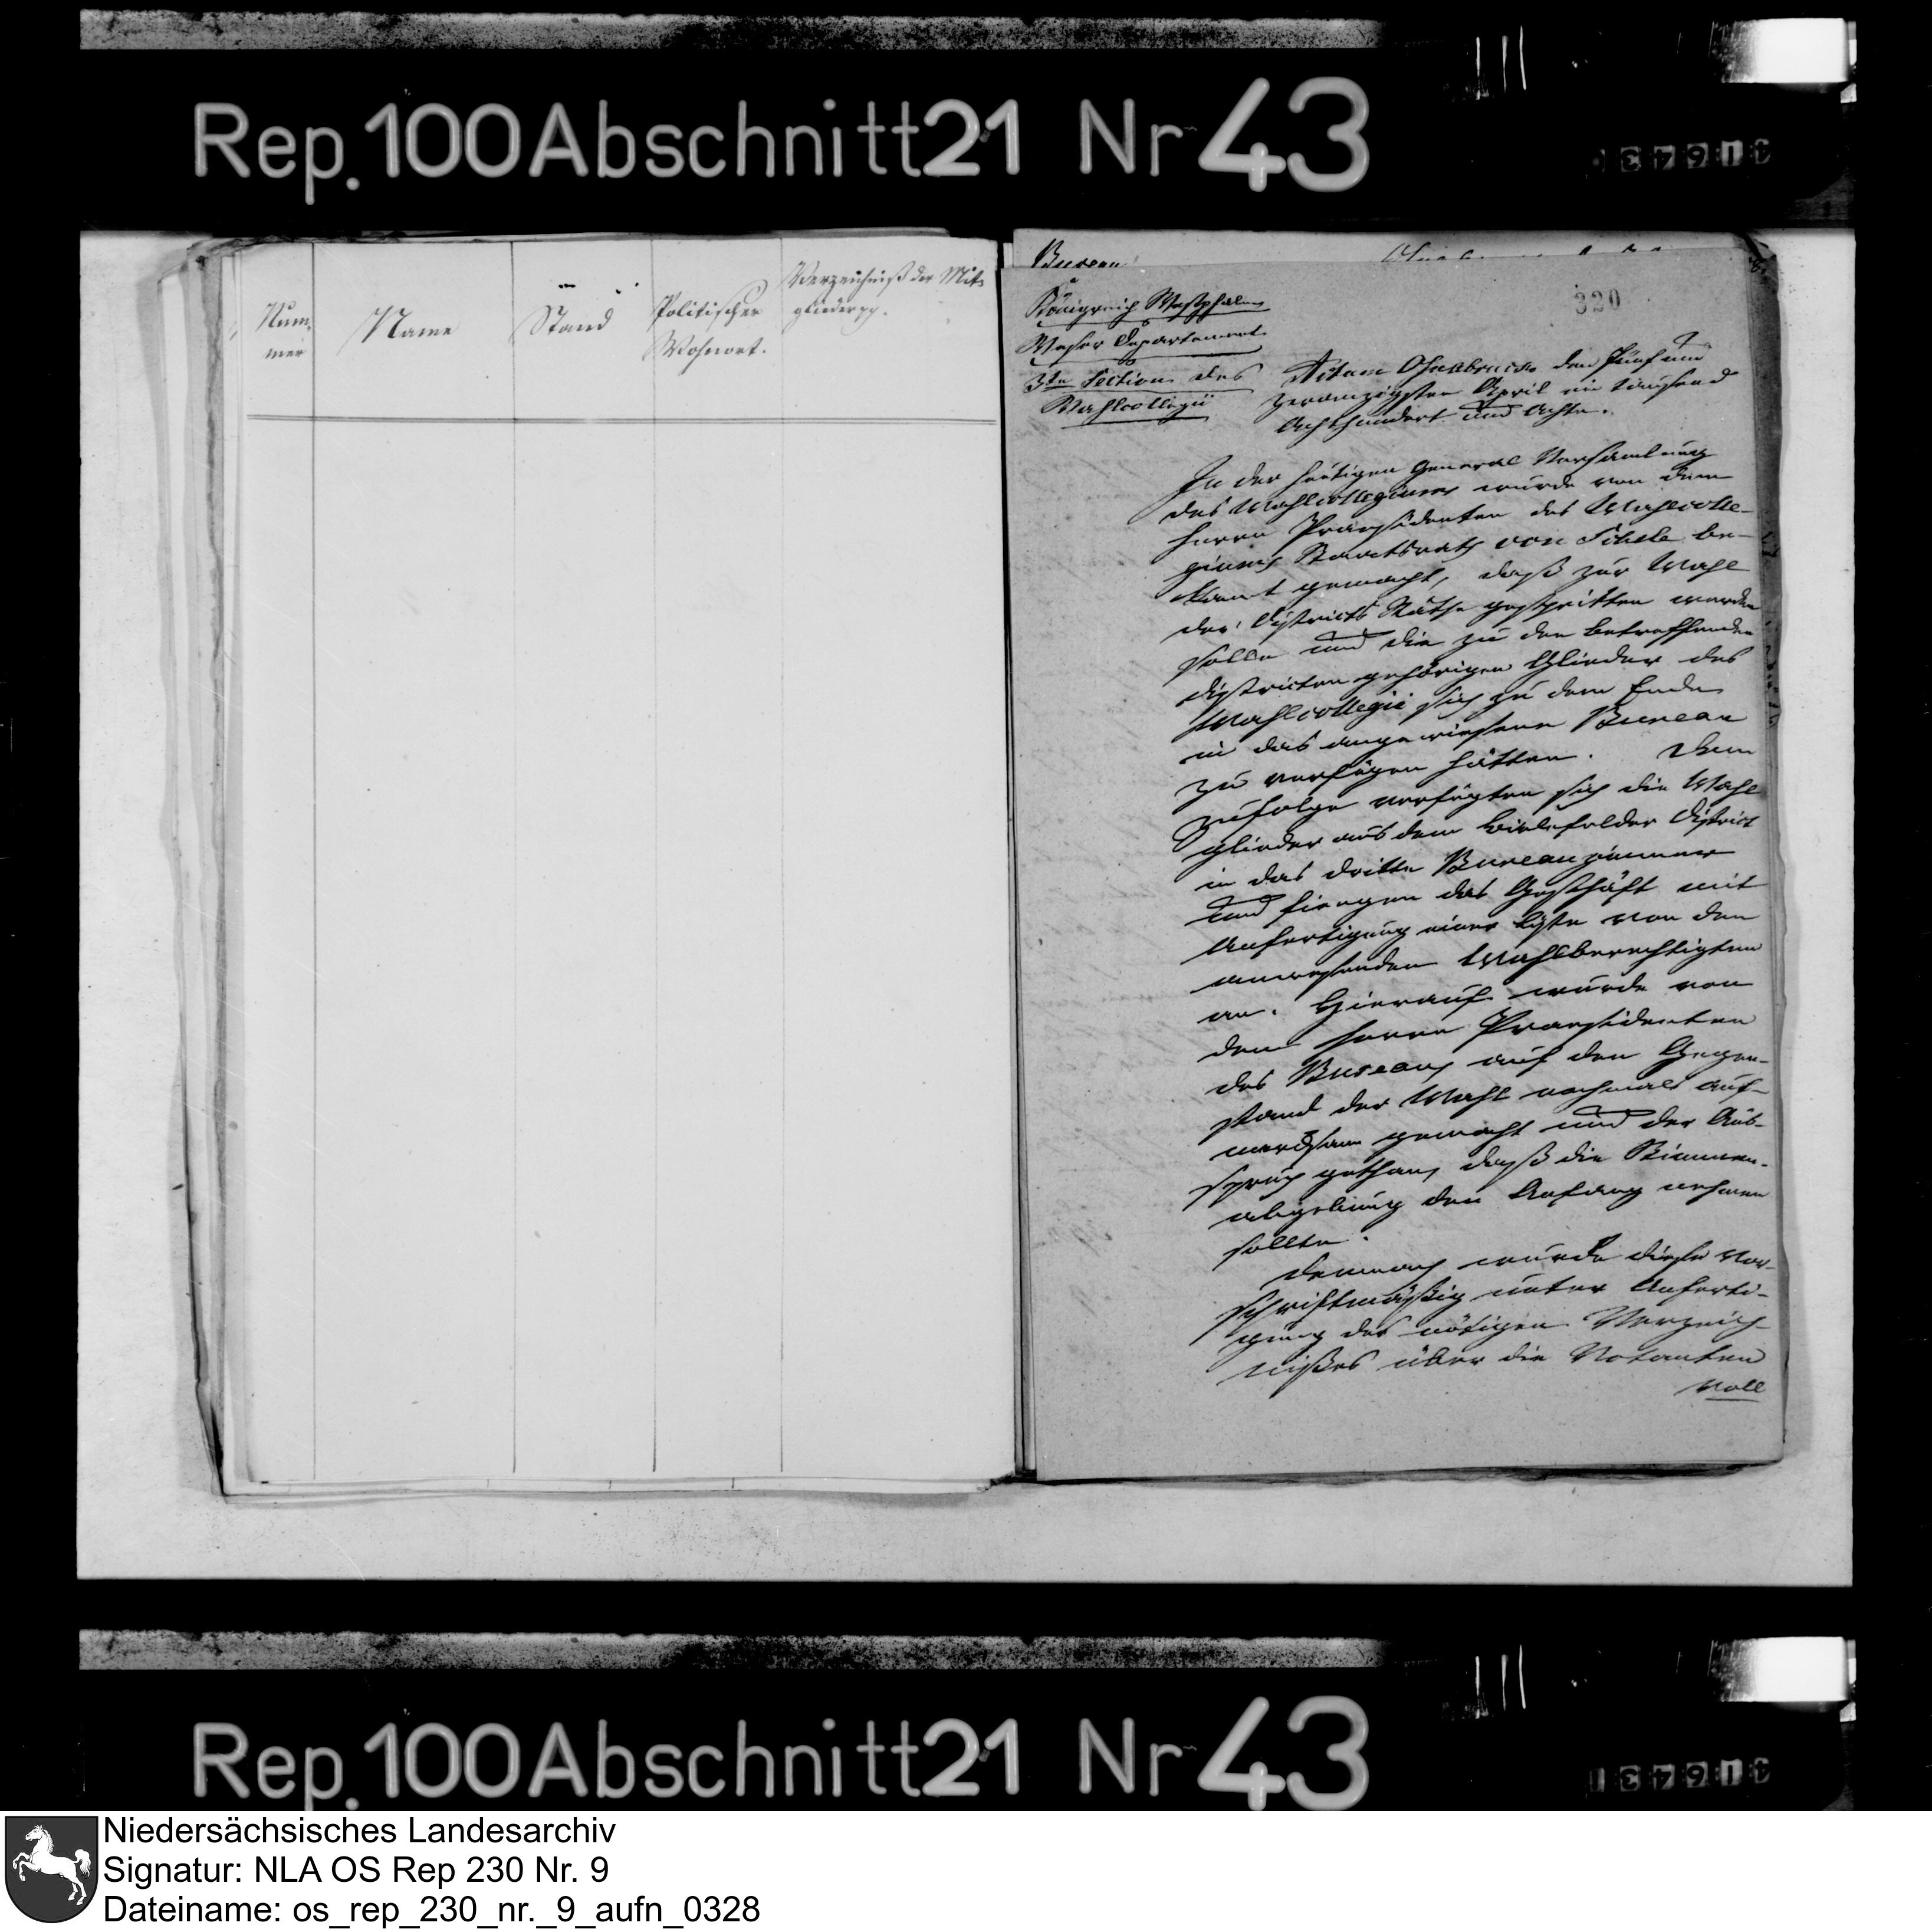 Rep. 100 Abschnitt 21 Nr 43
Num-
mer
Name
Stand
Politischer
Wohnort.
Verzeichniß der Mit-
glieder pp.
Bureau
320
Königreich Westphalen
Weser Departement
3te Section des
Wahlcollegii
Actum Osnabrück den fünf und
zwanzigsten April ein tausend
Achthundert und Achte.
In der heutigen General Versamlung
des Wahlcollegiums wurde von dem
Herrn Praesidenten des Wahlcolle-
giums Staatsrath von Schele be-
kannt gemacht, daß zur Wahl
der Districts Räthe geschritten werden
solle und die zu den betreffenden
Districten gehörigen Glieder des
Wahlcollegii sich zu dem Ende
in das angewiesene Bureau
zu verfügen hätten. Dem
zufolge verfügten sich die Wahl
glieder aus dem Bielefelder District
in das dritte Bureauzimmer
und fiengen das Geschäft mit
Anfertigung einer Liste von den
anwesenden Wahlberechtigten
an. Hierauf wurde von
dem Herrn Praesidenten
des Bureaus auf den Gegen-
stand der Wahl nochmals auf-
merksam gemacht und der Aus-
spruch gethan, daß die Stimmen-
abgebung den Anfang nehmen
sollte.
Demnach wurde diese vor-
schriftmäßig unter Anferti-
gung des nötigen Verzeich-
nißes über die Votanten
voll
Rep. 100 Abschnitt 21 Nr 43
Niedersächsisches Landesarchiv
Signatur: NLA OS Rep 230 Nr. 9
Dateiname: os_rep_230_nr._9_aufn_0328